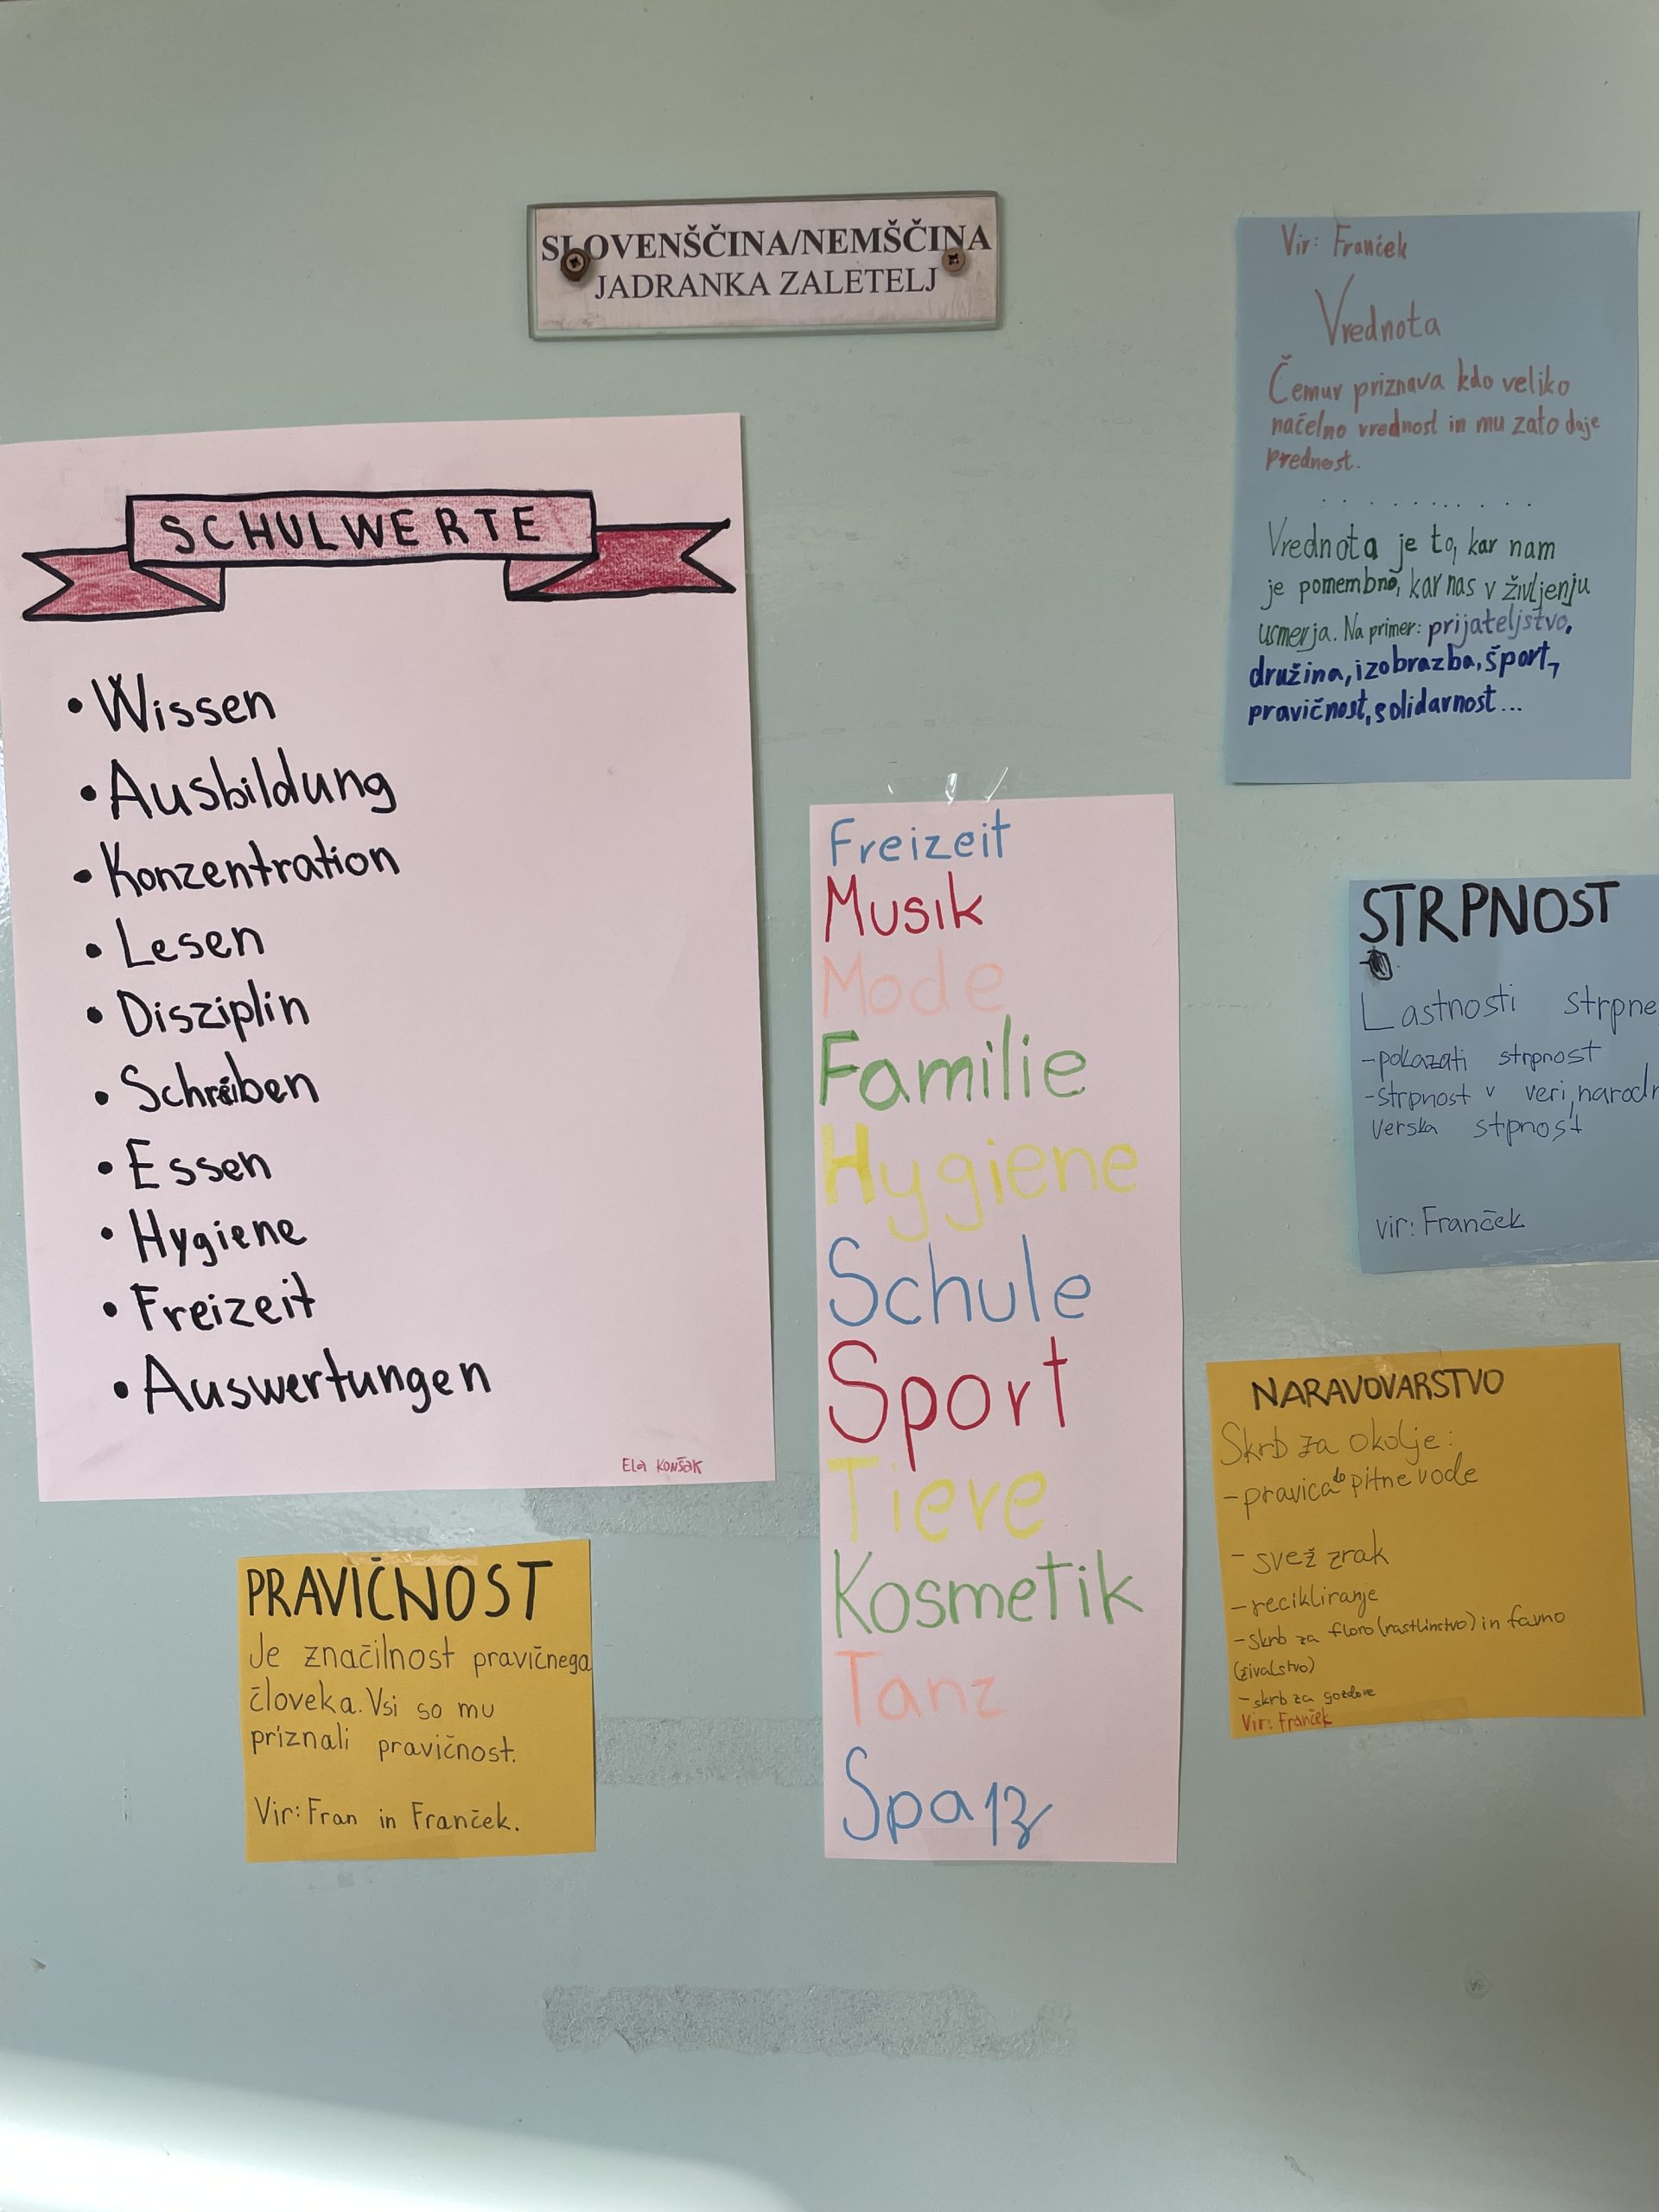 SLOVENŠČINA/NEMŠČINA
JADRANKA ZALETELJ
Vir: Franček
Vrednota
Čemur priznava kdo veliko
načelno vrednost in mu zato daje
prednost.
. . . . . . . . . .
Vrednota je to, kar nam
je pomembno, kar nas v življenju
usmerja. Na primer: prijateljstvo,
družina, izobrazba, šport,
pravičnost, solidarnost...
SCHULWERTE
• Wissen
• Ausbildung
• Konzentration
• Lesen
• Disziplin
• Schreiben
• Essen
• Hygiene
• Freizeit
• Auswertungen
Ela Konšak
Freizeit
Musik
Mode
Familie
Hygiene
Schule
Sport
Tiere
Kosmetik
Tanz
Spaß
STRPNOST
Lastnosti strpne
-pokazati strpnost
-strpnost v veri, narodn
verska strpnost
vir: Franček
NARAVOVARSTVO
Skrb za okolje:
-pravica do pitne vode
- svež zrak
-recikliranje
-skrb za floro (rastlinstvo) in favno
(živalstvo)
-skrb za gozdove
Vir: Franček
PRAVIČNOST
Je značilnost pravičnega
človeka. Vsi so mu
priznali pravičnost.
Vir: Fran in Franček.